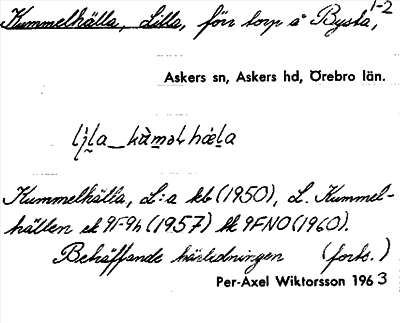 1-2
Kummelhälla, Lilla, förr torp å Bysta,
Askers sn, Askers hd, Örebro län.
Kummelhälla, L:a kb (1950), L. Kummel-
hällen ek 9F-9h (1957) 9FNO (1960).
Beträffande härledningen (forts.)
Per-Axel Wiktorsson 1963